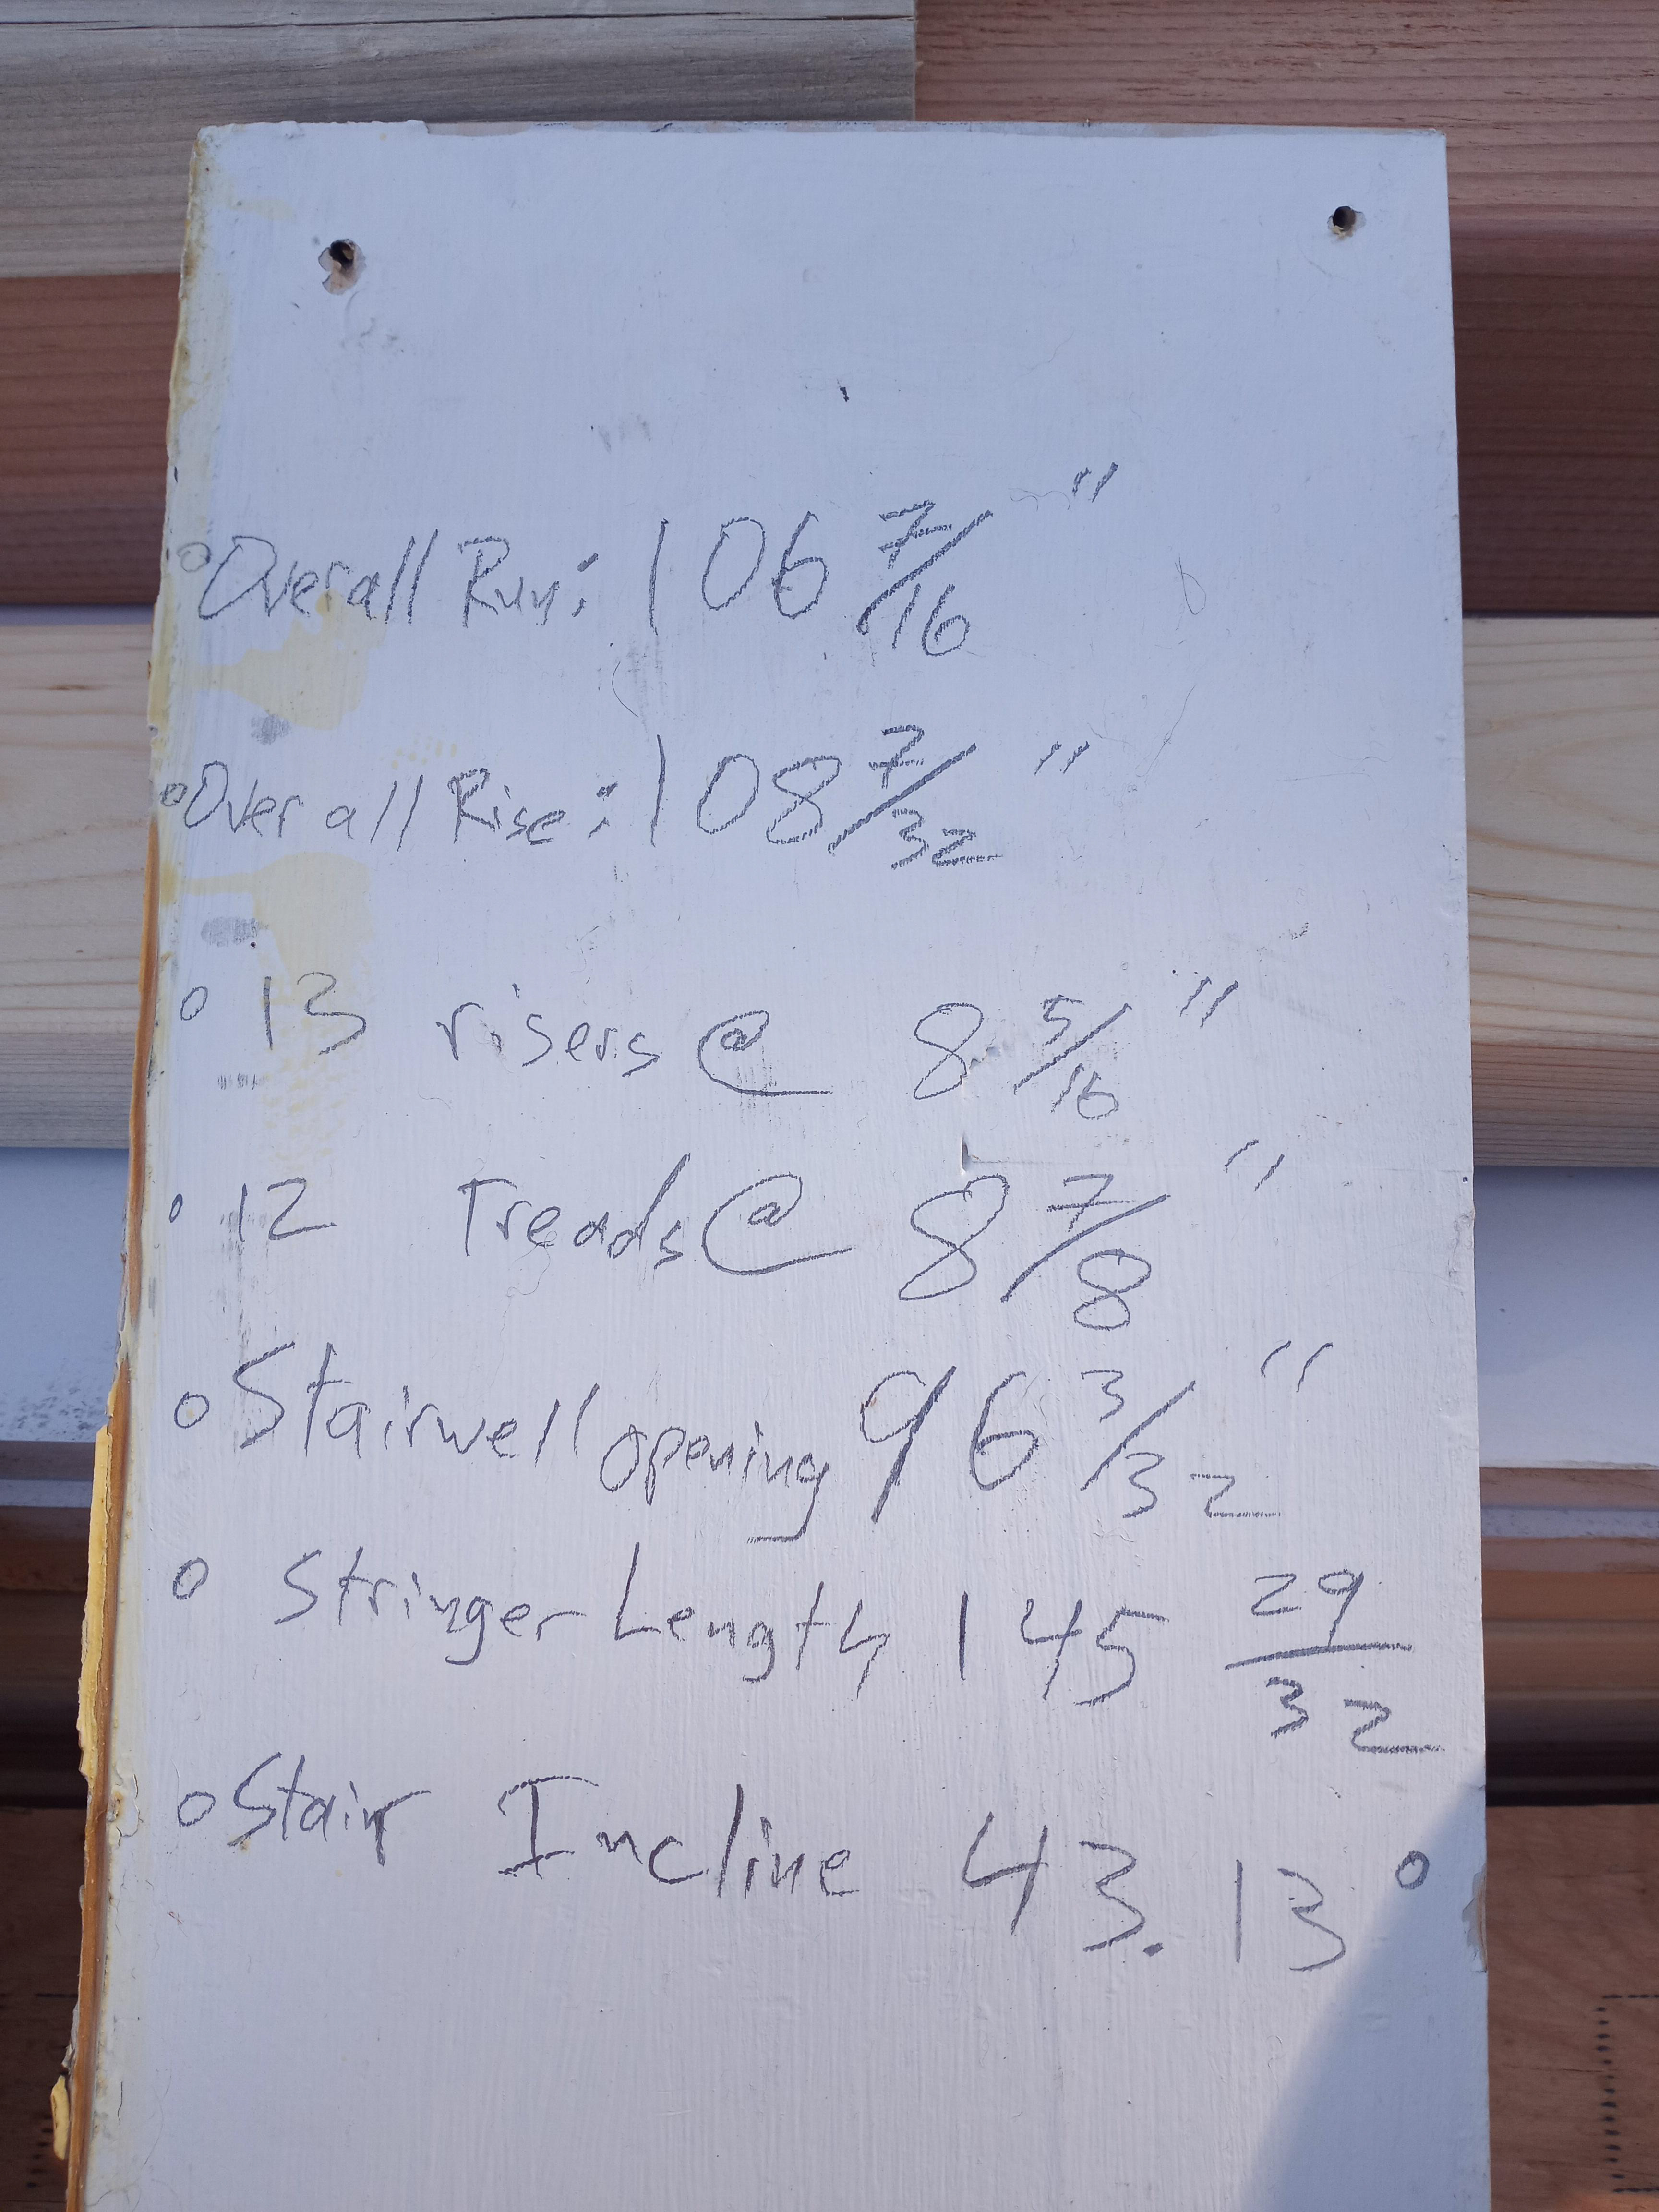 ° Overall Run: 106 7/16"
° Overall Rise: 108 7/32"
° 13 risers @ 8 5/16"
° 12 Treads @ 8 7/8"
° Stairwell opening 96 3/32"
° Stringer Length 145 29/32
° Stair Incline 43.13°